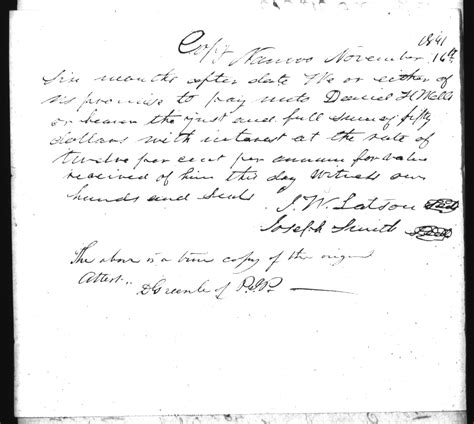 1841
Copy Nauvoo November 16th
Six months after date We or either of
us promise to pay unto Daniel H Wells
or bearer the just and full sum of fifty
dollars with interest at the rate of
twelve per cent per annum for value
received of him this day Witness our
hands and Seals
J. W. Latson Seal
Joseph Smith Seal
The above is a true copy of the original
Attest.
D Greenleaf P.